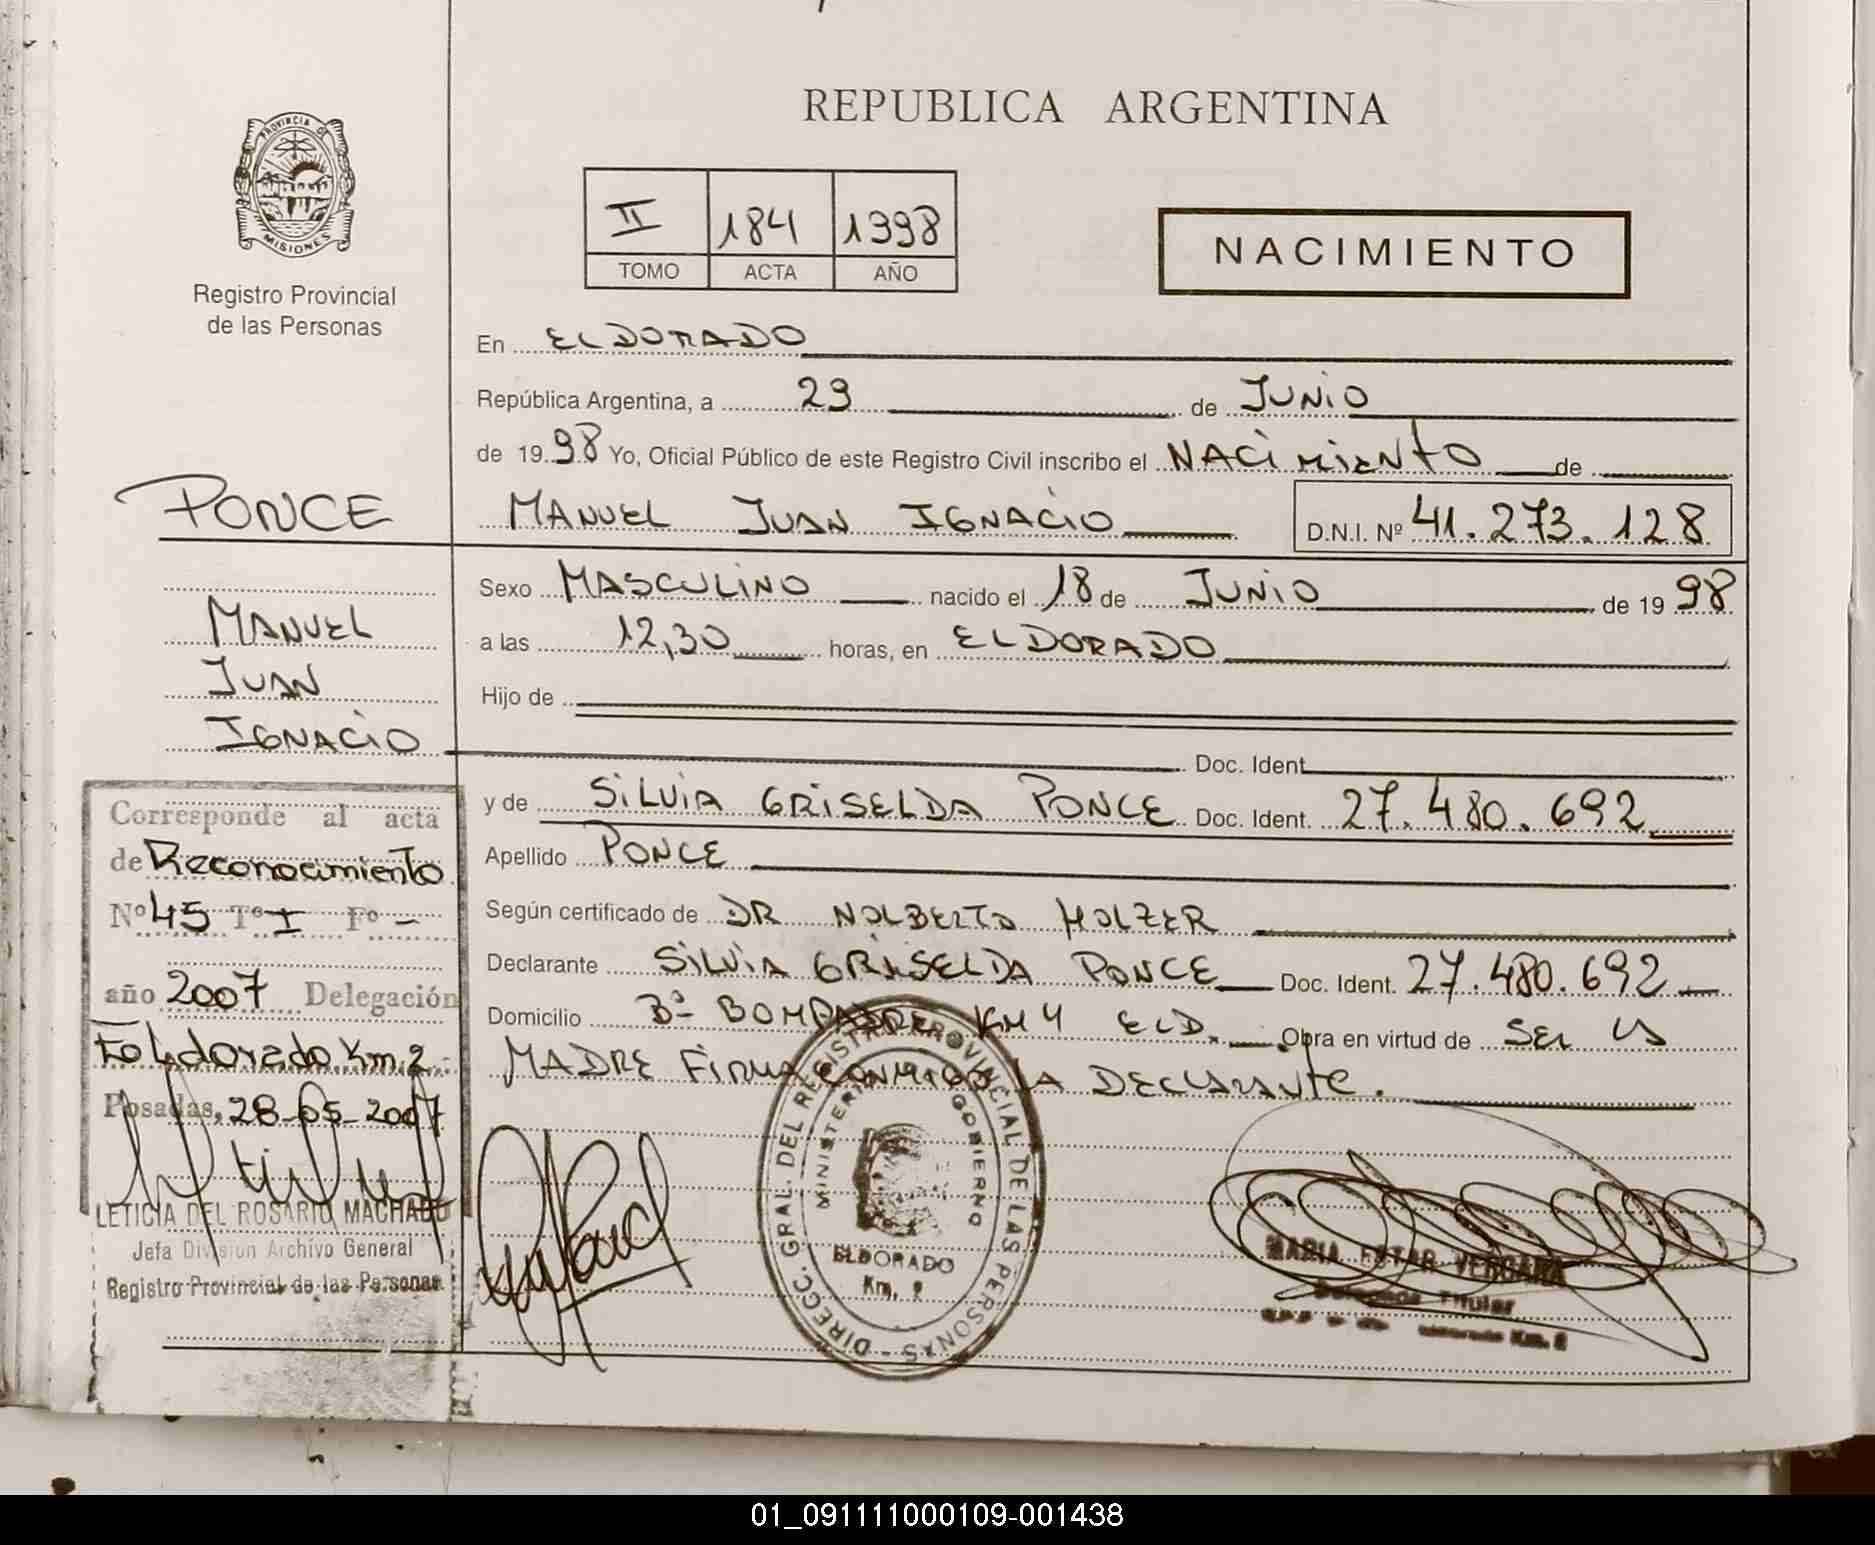 REPUBLICA ARGENTINA
PROVINCIA DE
MISIONES
Registro Provincial
de las Personas
II 184 1998
TOMO ACTA AÑO
NACIMIENTO
En ELDORADO
República Argentina, a 29 de JUNIO
de 1998 Yo, Oficial Público de este Registro Civil inscribo el NACIMIENTO de
MANUEL JUAN IGNACIO D.N.I. Nº 41.273.128
Sexo MASCULINO nacido el 18 de JUNIO de 1998
a las 12,30 horas, en ELDORADO
Hijo de
Doc. Ident.
y de SILVIA GRISELDA PONCE Doc. Ident. 27.480.692
Apellido PONCE
Según certificado de DR NOLBERTO HOLZER
Declarante SILVIA GRISELDA PONCE Doc. Ident. 27.480.692
Domicilio Bº BOMPADRE KM 4 ELD. Obra en virtud de SER LA
MADRE FIRMA CONMIGO LA DECLARANTE.
PONCE
MANUEL
JUAN
IGNACIO
Corresponde al acta
de Reconocimiento
Nº 45 Tº I Fº -
año 2007 Delegación
Eldorado Km. 2
Posadas, 28-05-2007
LETICIA DEL ROSARIO MACHADO
Jefa División Archivo General
Registro Provincial de las Personas
DIRECC. GRAL. DEL REGISTRO PROVINCIAL DE LAS PERSONAS -
MINISTERIO GOBIERNO
ELDORADO
Km.
MARIA ESTER VERGARA
Titular
Km. 2
01_091111000109-001438